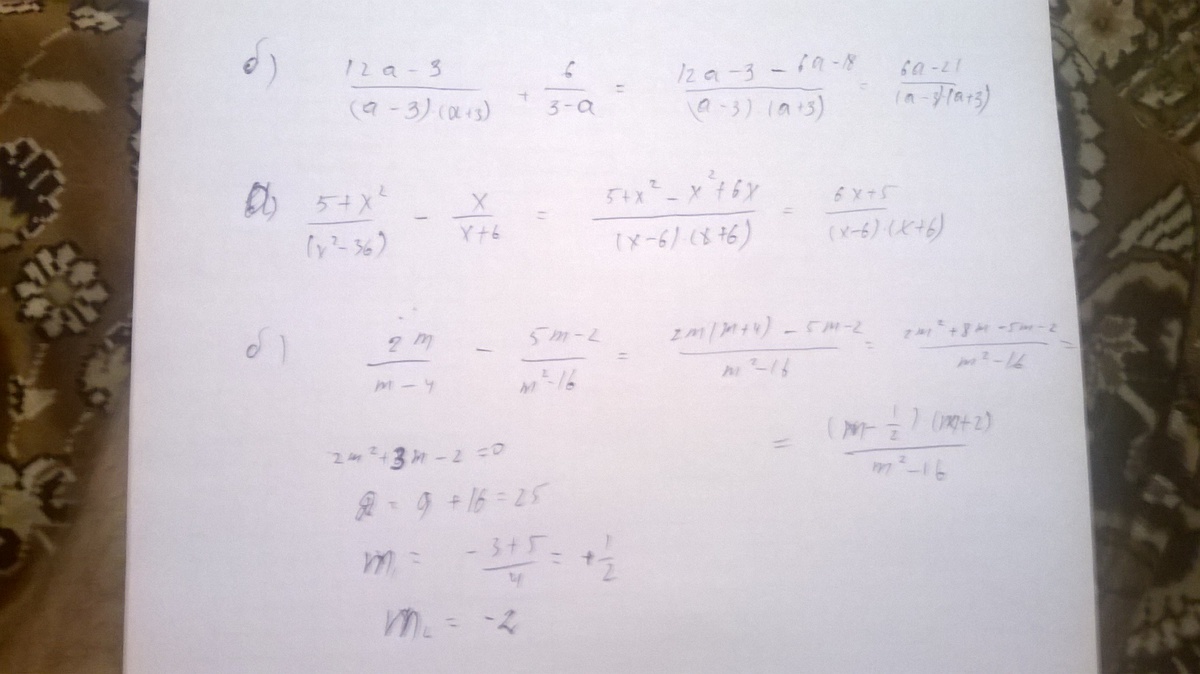 б) (12a - 3)/((a - 3)·(a+3)) + 6/(3-a) = (12a - 3 - 6a - 18)/((a - 3)·(a+3)) = (6a - 21)/((a - 3)·(a+3))
а) (5 + x²)/(x² - 36) - x/(x+6) = (5+x² - x² + 6x)/((x - 6)·(x+6)) = (6x + 5)/((x-6)·(x+6))
б) 2m/(m - 4) - (5m - 2)/(m² - 16) = (2m(m+4) - 5m - 2)/(m² - 16) = (2m² + 8m - 5m - 2)/(m² - 16) =
= ((m - 1/2)(m+2))/(m² - 16)
2m² + 3m - 2 = 0
D = 9 + 16 = 25
m₁ = (-3 + 5)/4 = +1/2
m₂ = -2